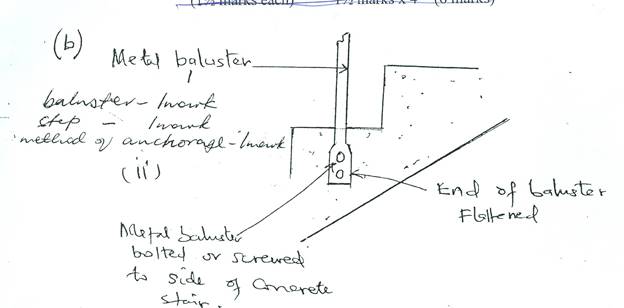 (1½ marks each) 1½ marks x 4 (6 marks)
(b) Metal baluster
baluster - 1mark
step - 1mark
method of anchorage - 1mark
(ii)
End of baluster
Flattened
Metal baluster
bolted or screwed
to side of Concrete
stair.